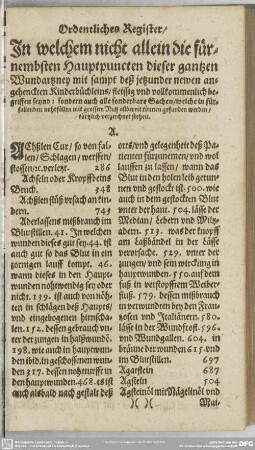 Ordentliches Register/
In welchem nicht allein die für-
nembsten Hauptpuncten dieser gantzen
Wundartzney mit sampt deß jetzunder newen an-
gehenckten Kinderbüchleins/ fleissig vnd vollkommenlich be-
griffen seynd: sondern auch alle sonderbare Sachen/ welche in für-
fallenden nohtfällen mit grossem Nutz allhierauß können gefunden werden/
kürtzlich verzeichnet stehen.
A.
AChßlen Cur/ so von fal-
len/ Schlagen/ werffen/
stossen/ ꝛc. verletzt. 286
Achseln oder Kropffbeins
Bruch. 348
Achßlen süß vrsach an kin-
dern. 743
Aderlassens mißbrauch im
Blutstillen. 41. In welchen
wunden dieses gut sey. 44. ist
auch gut/ so das Blut in ein
zornigen lauff kompt. 46.
wann dieses in den Haupt-
wunden nohtwendig sey oder
nicht. 139. ist auch von nöh-
ten in schlägen deß Haupts/
vnd eingebogenen hirnscha-
len. 152. dessen gebrauch vn-
ter der zungen in halßwundē.
298. wie auch in hauptwun-
den ibid. in geschossenen wun-
den 317. dessen nohturfft in
den hauptwunden. 468. es ist
auch alsbald nach gestalt deß
orts/ vnd gelegenheit deß Pa-
tienten fürzunemen/ vnd wol
lauffen zu lassen/ wann das
Blut in den holen leib gerun-
nen vnd gestockt ist. 500. wie
auch in dem gestockten Blut
vnter der haut. 504. lässe der
Median/ Lebern vnd Miltz-
adern. 513. was der knopff
am Laßbändel in der Lässe
verursache. 529. vnter der
zungen/ vnd sein wirckung in
hauptwunden. 550. auff dem
fuß in verstopfftem Weiber-
fluß. 579. dessen mißbrauch
in verwundten bey den Fran-
zosen vnd Italiänern. 580.
lässe in der Wundsucht. 596.
vnd Wundgallen. 604. in
bräune der wunden 625. vnd
im Blutstillen. 697
Agarstein 687
Agstein 504
Agsteinöl mit Mägelinöl vnd
)( )( Mai-